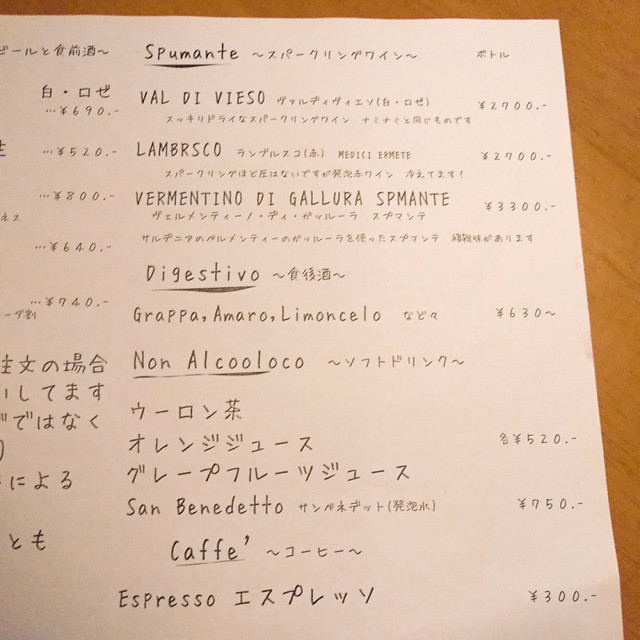 ビールと食前酒～
白・ロゼ
…￥690.-
…￥520.-
…￥800.-
…￥640.-
…￥940.-
注文の場合
してます
ではなく
による
とも
Spumante ～スパークリングワイン～ ボトル
VAL DI VIESO ヴァルディヴィエソ(白・ロゼ) ￥2700.-
スッキリドライなスパークリングワイン ナミナミと同じものです
LAMBRSCO ランブルスコ(赤) MEDICI ERMETE ￥2700.-
スパークリングほど圧はないですが発泡赤ワイン 冷えてます！
VERMENTINO DI GALLURA SPMANTE ￥3300.-
ヴェルメンティーノ・ディ・ガッルーラ スプマンテ
サルデニアのベルメンティーのガッルーラを使ったスプマンテ 味があります
Digestivo ～食後酒～
Grappa,Amaro,Limoncelo など々 ￥630～
Non Alcooloco ～ソフトドリンク～
ウーロン茶
オレンジジュース 各￥520.-
グレープフルーツジュース
San Benedetto サンベネデット(発泡水) ￥750.-
Caffe' ～コーヒー～
Espresso エスプレッソ ￥300.-